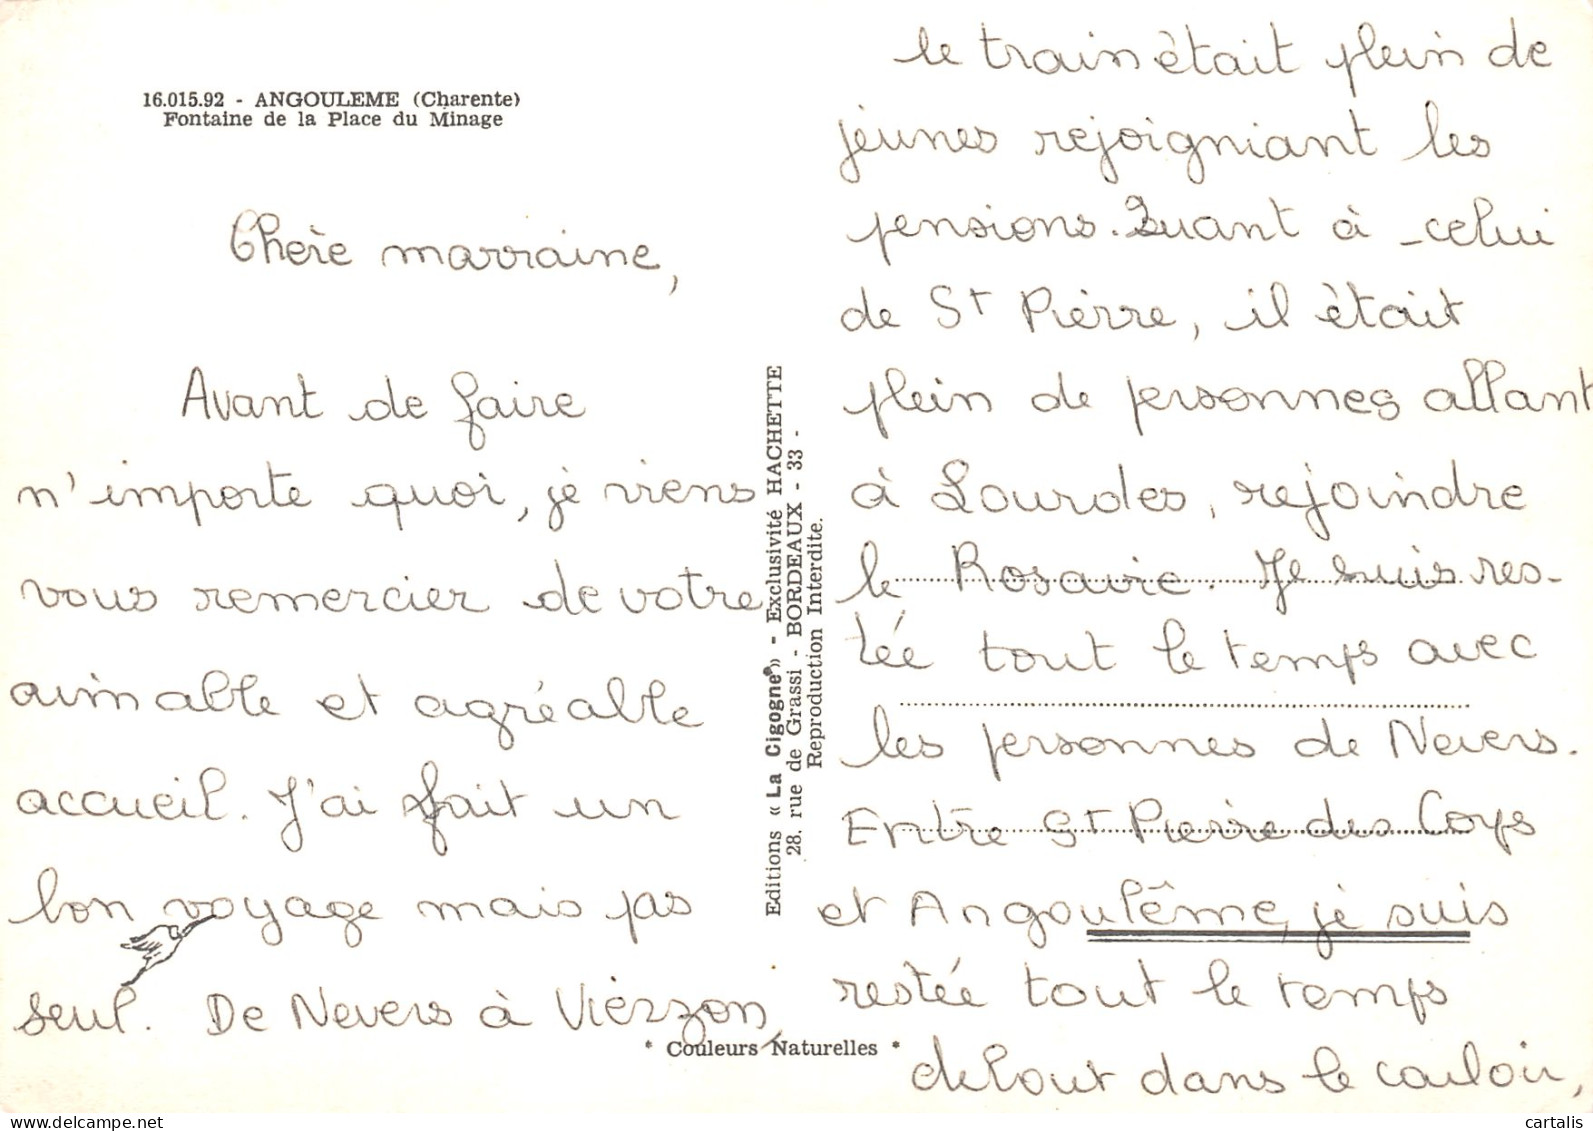 16.015.92 - ANGOULEME (Charente)
Fontaine de la Place du Minage
Chère marraine,
Avant de faire
n'importe quoi, je viens
vous remercier de votre
aimable et agréable
accueil. J'ai fait un
bon voyage mais pas
seul. De Nevers à Vierzon,
Editions « La Cigogne » - Exclusivité HACHETTE
28. rue de Grassi - BORDEAUX - 33 -
Reproduction Interdite.
* Couleurs Naturelles *
le train était plein de
jeunes rejoigniant les
pensions. Quant à - celui
de St Pierre, il était
plein de personnes allant
à Lourdes, rejoindre
le Rosaire. Je suis res-
tée tout le temps avec
les personnes de Nevers.
Entre St Pierre des Corps
et Angoulême, je suis
restée tout le temps
debout dans le couloir,
cartalis